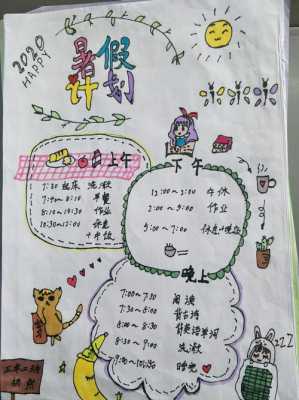 2020
HAPPY
暑假
计划
上午
7:20 起床 洗漱
7:40~8:10 早餐
8:10~10:30 作业
10:30~12:00 休息
+中饭
下午
12:00~2:00 午休
2:00~5:00 作业
5:00~7:00 休息+晚饭
晚上
7:00~7:30 阅读
7:30~8:00 背古诗
8:00~8:30 背英语单词
8:30~9:00 洗漱
睡觉
zzz